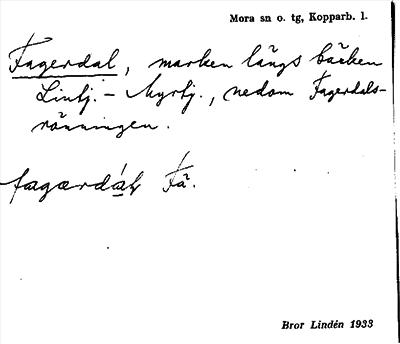 Mora sn o. tg, Kopparb. l.
Fagerdal, marken längs bäcken
Lintj. – Myrtj., nedom Fagerdals-
ränningen.
Fä.
Bror Lindén 1933